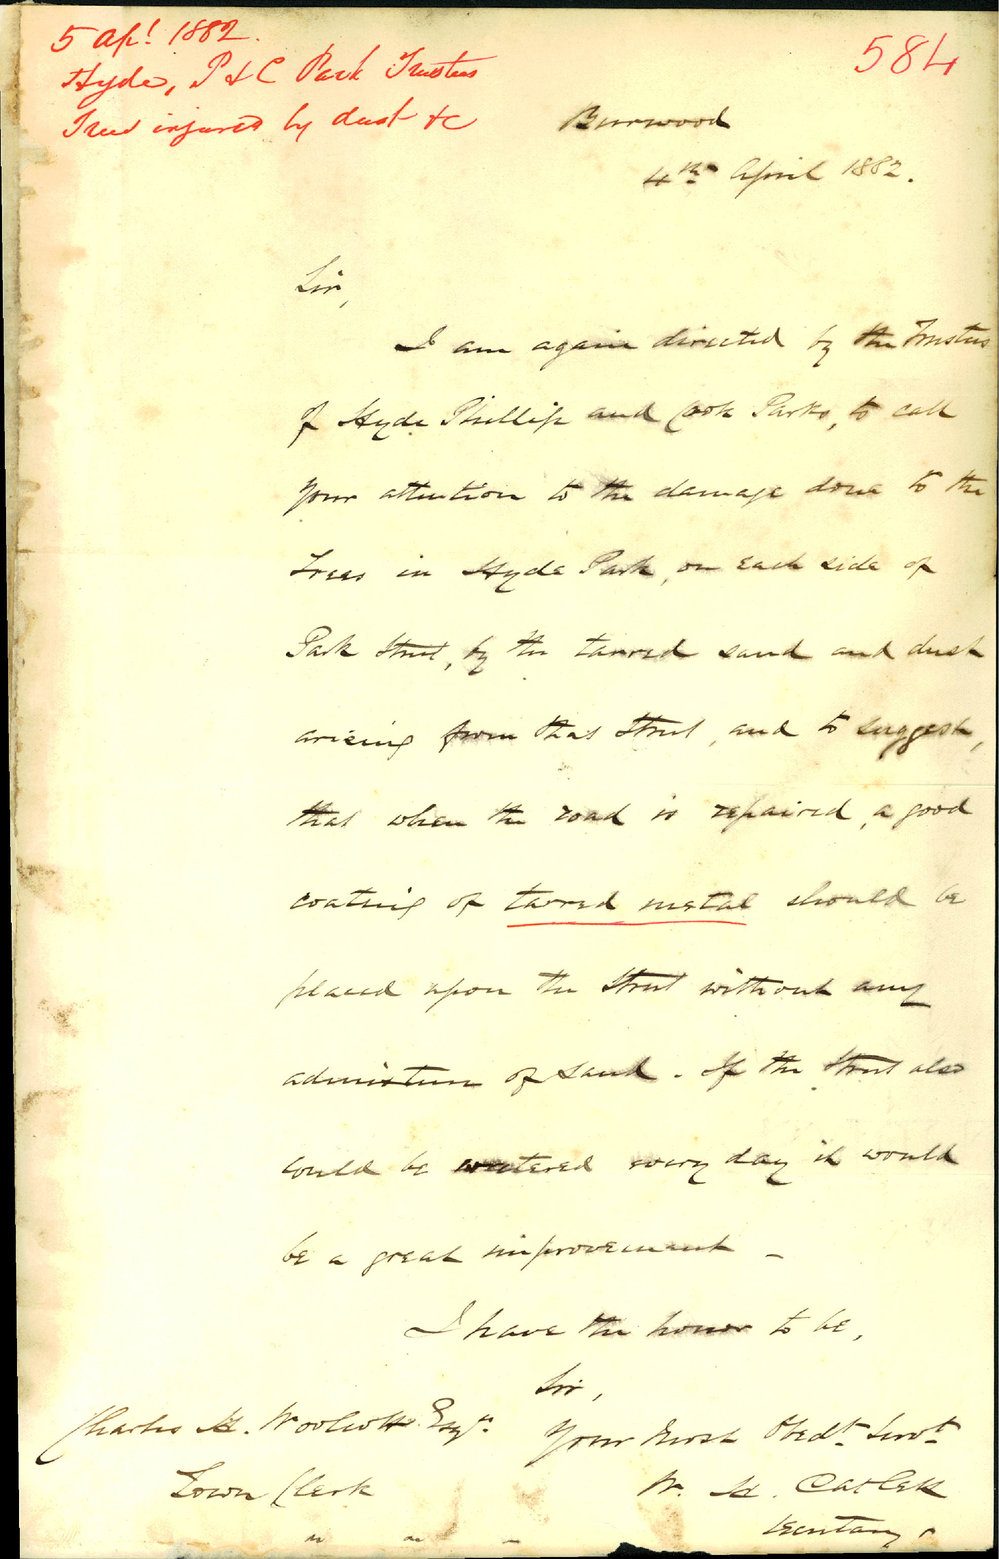 5 Apl. 1882.
Hyde, P & C Park Trustees
Trees injured by dust &c
584
Burwood
4th April 1882.
Sir,
I am again directed by the Trustees
of Hyde Phillip and Cook Parks, to call
your attention to the damage done to the
Trees in Hyde Park, on each side of
Park Street, by the tarred sand and dust
arising from that Street, and to suggest,
that when the road is repaired, a good
coating of tarred metal should be
placed upon the Street without any
admixture of sand. If the Street also
could be watered every day it would
be a great improvement -
I have the honor to be,
Sir,
Your Most Obedt. Servt.
W. H. Catlett
Secretary.
Charles H. Woolcott Esqr.
Town Clerk